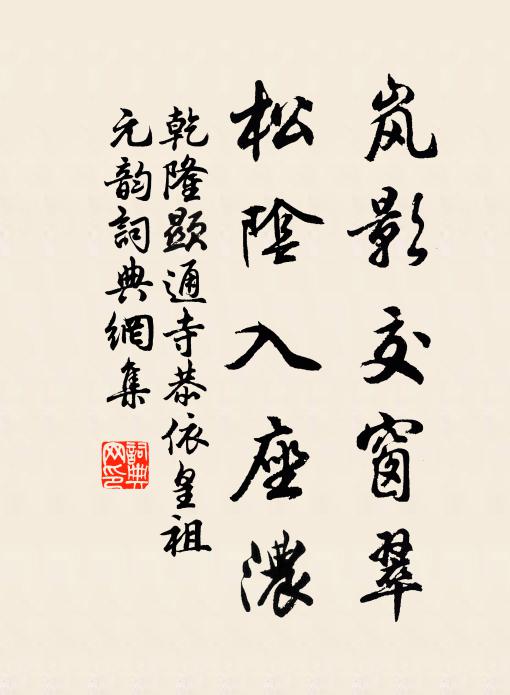 岚影交窗翠
松陰入座濃
乾隆顯通寺恭依皇祖
元韵詞典網集
詞典網印